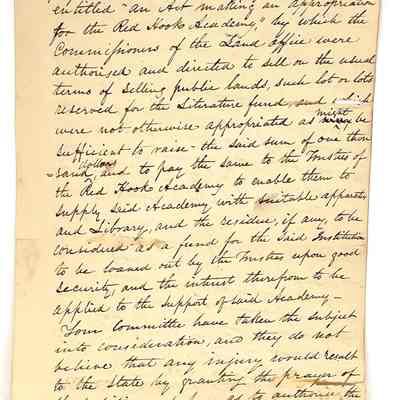 entitled "an Act making an appropriation
for the Red Hook Academy," by which the
Commissioners of the Land office were
authorised and directed to sell on the usual
terms of selling public lands, such lot or lots
reserved for the Literature fund, and which
were not otherwise appropriated as might be
sufficient to raise the said sum of one thou
-sand dollars, and to pay the same to the Trustees of
the Red Hook Academy to enable them to
supply said Academy with suitable apparatus
and Library, and the residue, if any, to be
considered as a fund for the said Institution
to be loaned out by the Trustees upon good
security, and the interest thereupon to be
applied to the support of said Academy—
Your Committee have taken the subject
into consideration, and they do not
believe that any injury would result
to the State by granting the prayer of
the as to authorise the